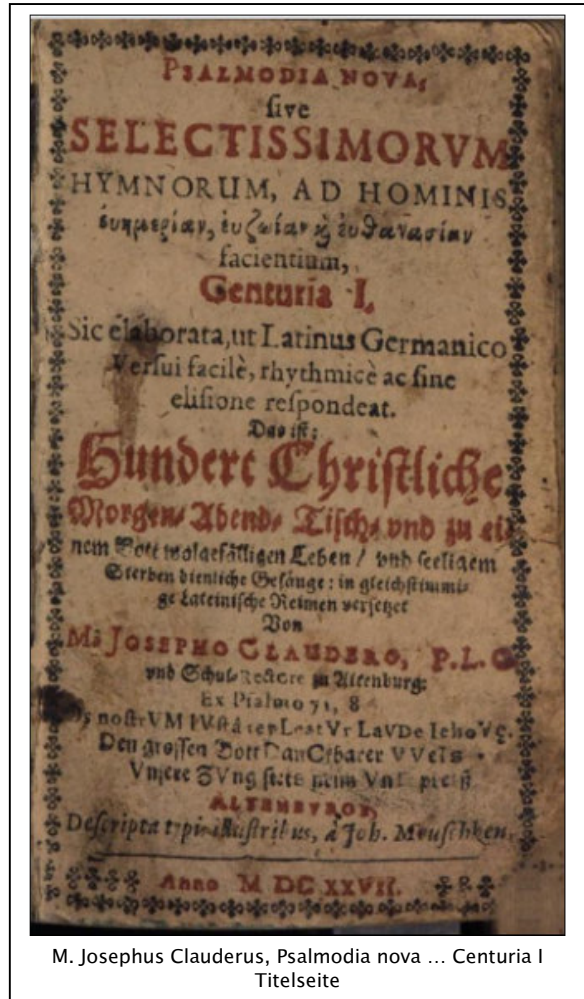 PSALMODIA NOVA,
ſive
SELECTISSIMORVM
HYMNORUM, AD HOMINIS
ἐυημερίαν, ἐυζωίαν ϗ ἐυθανασίαν
facientium,
Centuria I.
Sic elaborata, ut Latinus Germanico
Verſui facilè, rhythmicè ac ſine
eliſione reſpondeat.
Das iſt:
Hundert Chriſtliche
Morgen/ Abend/ Tiſch/ vnd zu ei-
nem Gott wolgefälligen Leben / vnd ſeeligem
Sterben dienliche Geſänge: in gleichſtimmi-
ge Lateiniſche Reimen verſetzet
Von
M. JOSEPHO CLAUDERO, P. L. C.
vnd Schul-Rectore zu Altenburg.
Ex Pſalmo 71, 8
noſtrVM LaVDe IehoVę.
Den groſſen Gott DanCkbarer VVeIs
Vnſere ZVng ſtets preiſt
ALTENBVRGI,
Deſcripta typis illuſtribus, à Joh. Meuſchken.
Anno M DC XXVII.
M. Josephus Clauderus, Psalmodia nova … Centuria I
Titelseite